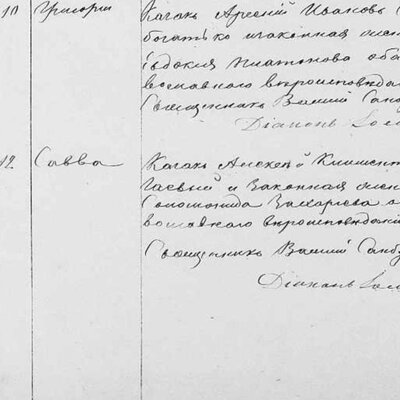 10 Григорій Казакъ Арсеній Ивановъ
богатько и законная жен
Евдокия Платонова оба
вославного вероисповеда
Священникъ Василій Санд
Діаконъ
12 Савва Казакъ Алексей Климент
гаевый и законная жен
Соломонида Захарьева о
вославного вероисповедані
Священникъ Василій Санд
Діаконъ